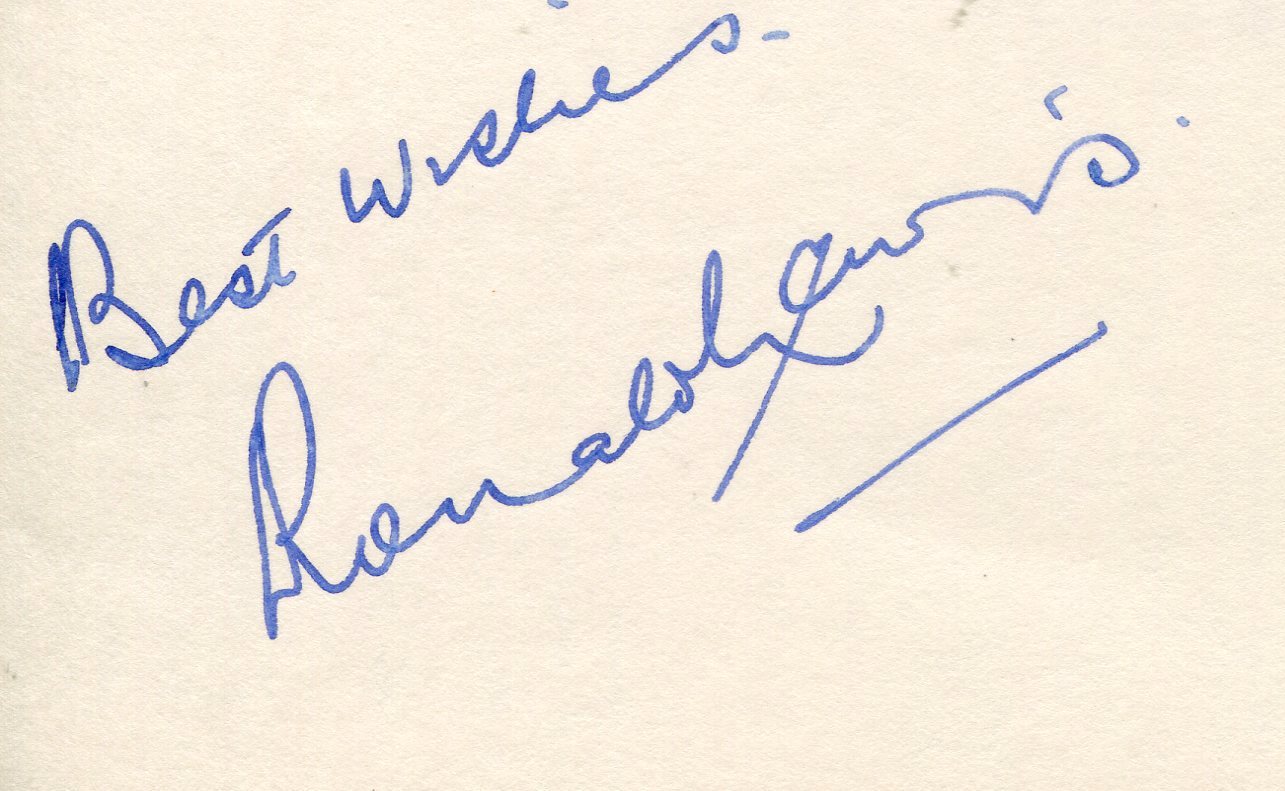 Best Wishes -
Ronald Lewis.